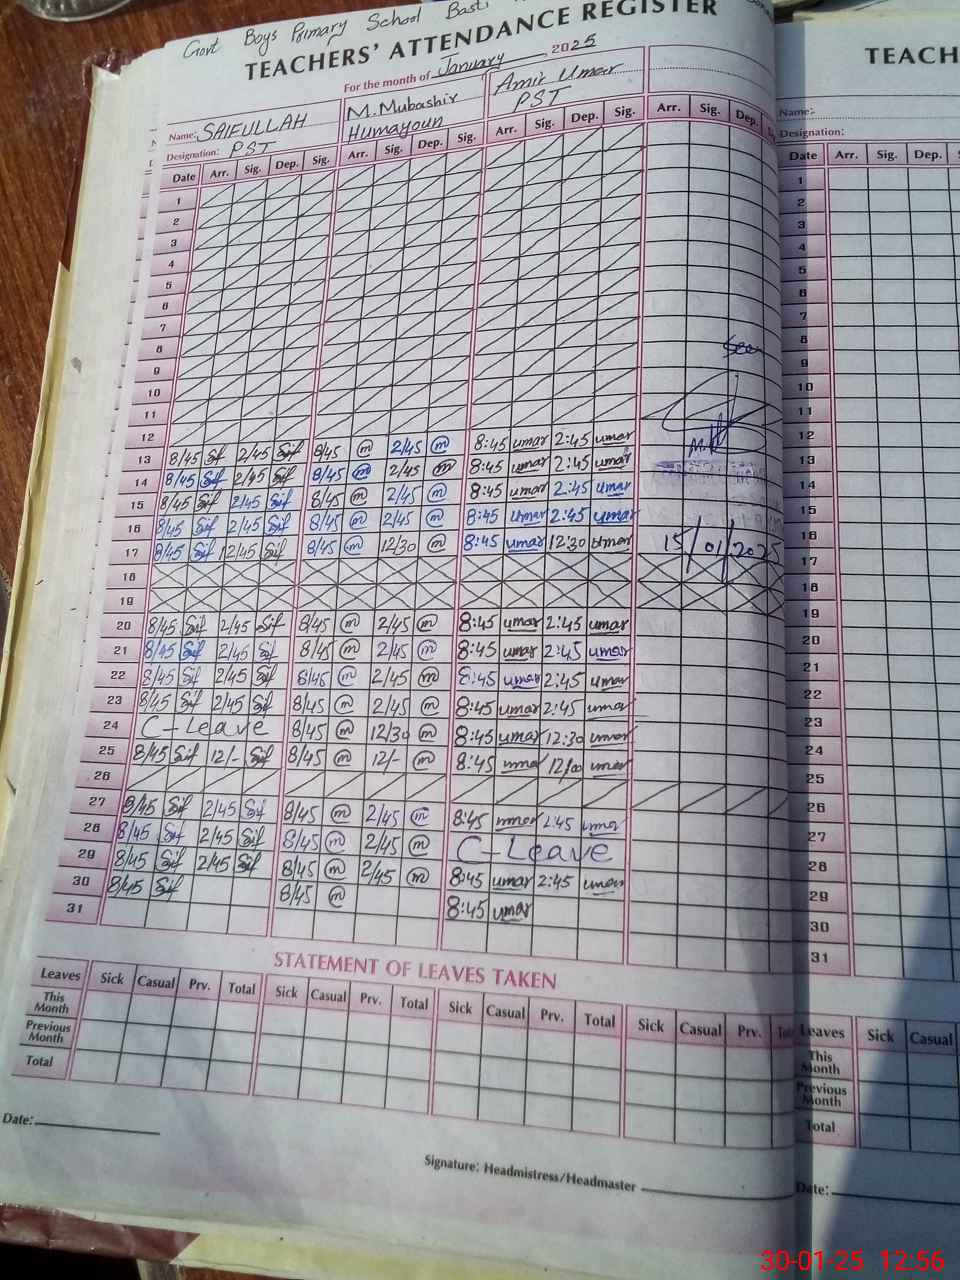 Govt Boys Primary School Basti
TEACHERS' ATTENDANCE REGISTER
For the month of January 2025
Name: SAIFULLAH M. Mubashir Humayoun Amir Umar
Designation: PST PST
Date Arr. Sig. Dep. Sig. Arr. Sig. Dep. Sig. Arr. Sig. Dep. Sig. Arr. Sig. Dep.
1
2
3
4
5
6
7
8 Seen
9
10
11
12
13 8/45 Sif 2/45 Sif 8/45 m 2/45 m 8:45 umar 2:45 umar
14 8/45 Sif 2/45 Sif 8/45 m 2/45 m 8:45 umar 2:45 umar
15 8/45 Sif 2/45 Sif 8/45 m 2/45 m 8:45 umar 2:45 umar
16 8/45 Sif 2/45 Sif 8/45 m 2/45 m 8:45 umar 2:45 umar
17 8/45 Sif 12/45 Sif 8/45 m 12/30 m 8:45 umar 12:30 umar 15/01/2025
18
19
20 8/45 Sif 2/45 Sif 8/45 m 2/45 m 8:45 umar 2:45 umar
21 8/45 Sif 2/45 Sif 8/45 m 2/45 m 8:45 umar 2:45 umar
22 8/45 Sif 2/45 Sif 8/45 m 2/45 m 8:45 umar 2:45 umar
23 8/45 Sif 2/45 Sif 8/45 m 2/45 m 8:45 umar 2:45 umar
24 C-Leave 8/45 m 12/30 m 8:45 umar 12:30 umar
25 8/45 Sif 12/- Sif 8/45 m 12/- m 8:45 umar 12/00 umar
26
27 8/45 Sif 2/45 Sif 8/45 m 2/45 m 8:45 umar 2:45 umar
28 8/45 Sif 2/45 Sif 8/45 m 2/45 m C-Leave
29 8/45 Sif 2/45 Sif 8/45 m 2/45 m 8:45 umar 2:45 umar
30 8/45 Sif 8/45 m 8:45 umar
31
STATEMENT OF LEAVES TAKEN
Leaves Sick Casual Prv. Total Sick Casual Prv. Total Sick Casual Prv. Total Sick Casual Prv.
This Month
Previous Month
Total
Date:
Signature: Headmistress/Headmaster
TEACH
Name:
Designation:
Date Arr. Sig. Dep.
1
2
3
4
5
6
7
8
9
10
11
12
13
14
15
16
17
18
19
20
21
22
23
24
25
26
27
28
29
30
31
Leaves Sick Casual
This Month
Previous Month
Total
Date:
30-01-25 12:56